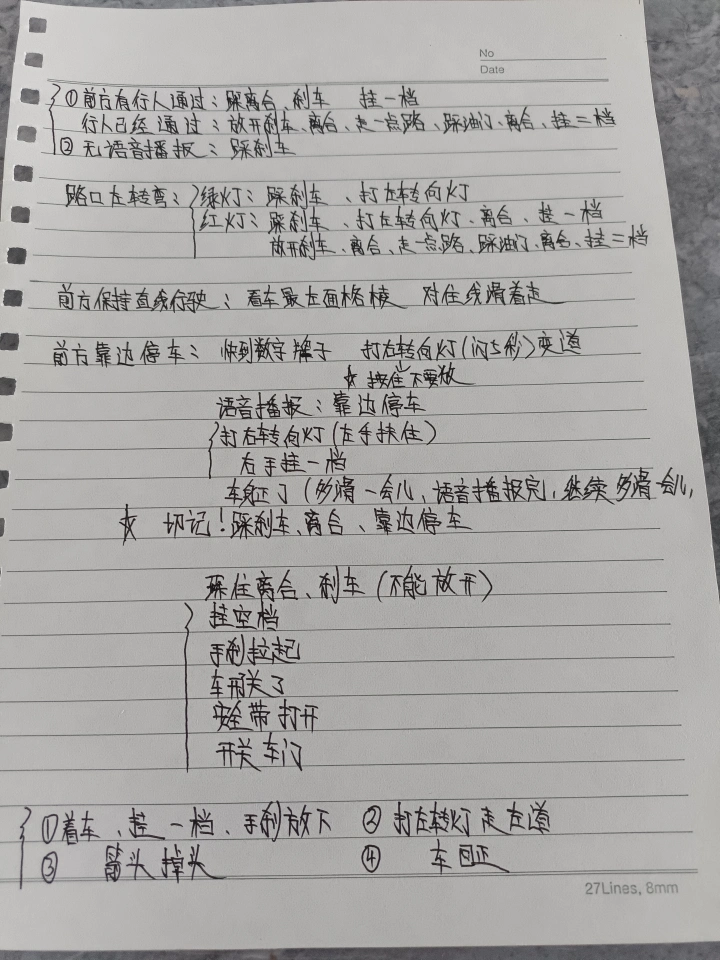 No
Date
①前方有行人通过：踩离合、刹车 挂一档
行人已经通过：放开刹车、离合、走一点路、踩油门、离合、挂二档
②无语音播报：踩刹车
路口左转弯：绿灯：踩刹车、打左转向灯
红灯：踩刹车、打左转向灯、离合、挂一档
放开刹车、离合、走一点路、踩油门、离合、挂二档
前方保持直线行驶：看车最左面格棱 对住线滑着走
前方靠边停车：快到数字牌子 打右转向灯(闪5秒)变道
☆按住不要放
语音播报：靠边停车
打右转向灯(左手扶住)
右手挂一档
车正了(多滑一会儿,语音播报完,继续多滑一会儿,
☆ 切记！踩刹车、离合、靠边停车
踩住离合、刹车(不能放开)
挂空档
手刹拉起
车关了
安全带打开
开关车门
①着车、挂一档、手刹放下 ②打左转灯走左道
③ 箭头掉头 ④ 车回正
27Lines, 8mm